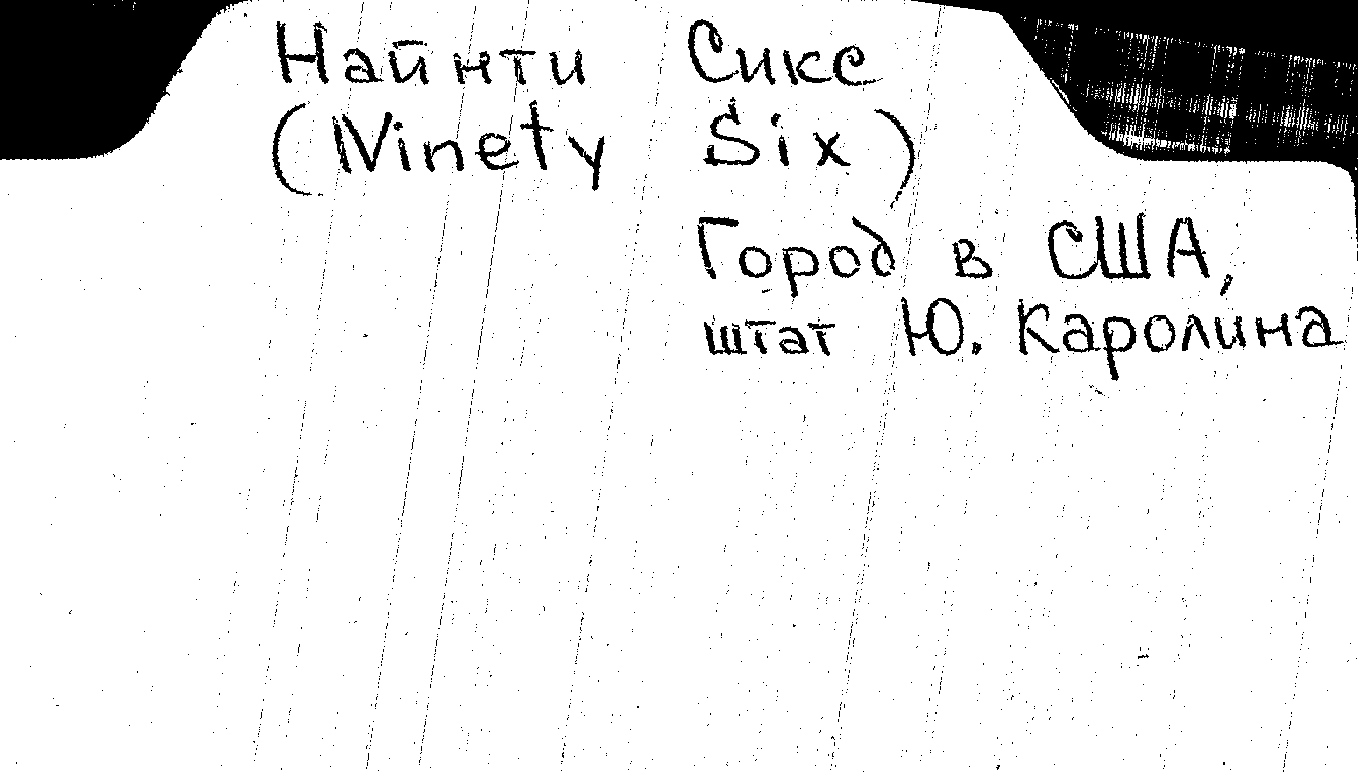 Найнти Сикс
(Ninety Six)
Город в США,
штат Ю. Каролина